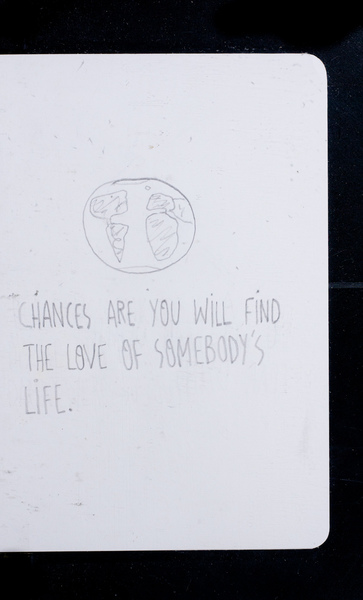 CHANCES ARE YOU WiLL FiND
THE LOVE OF SOMEBODY'S
LiFE.